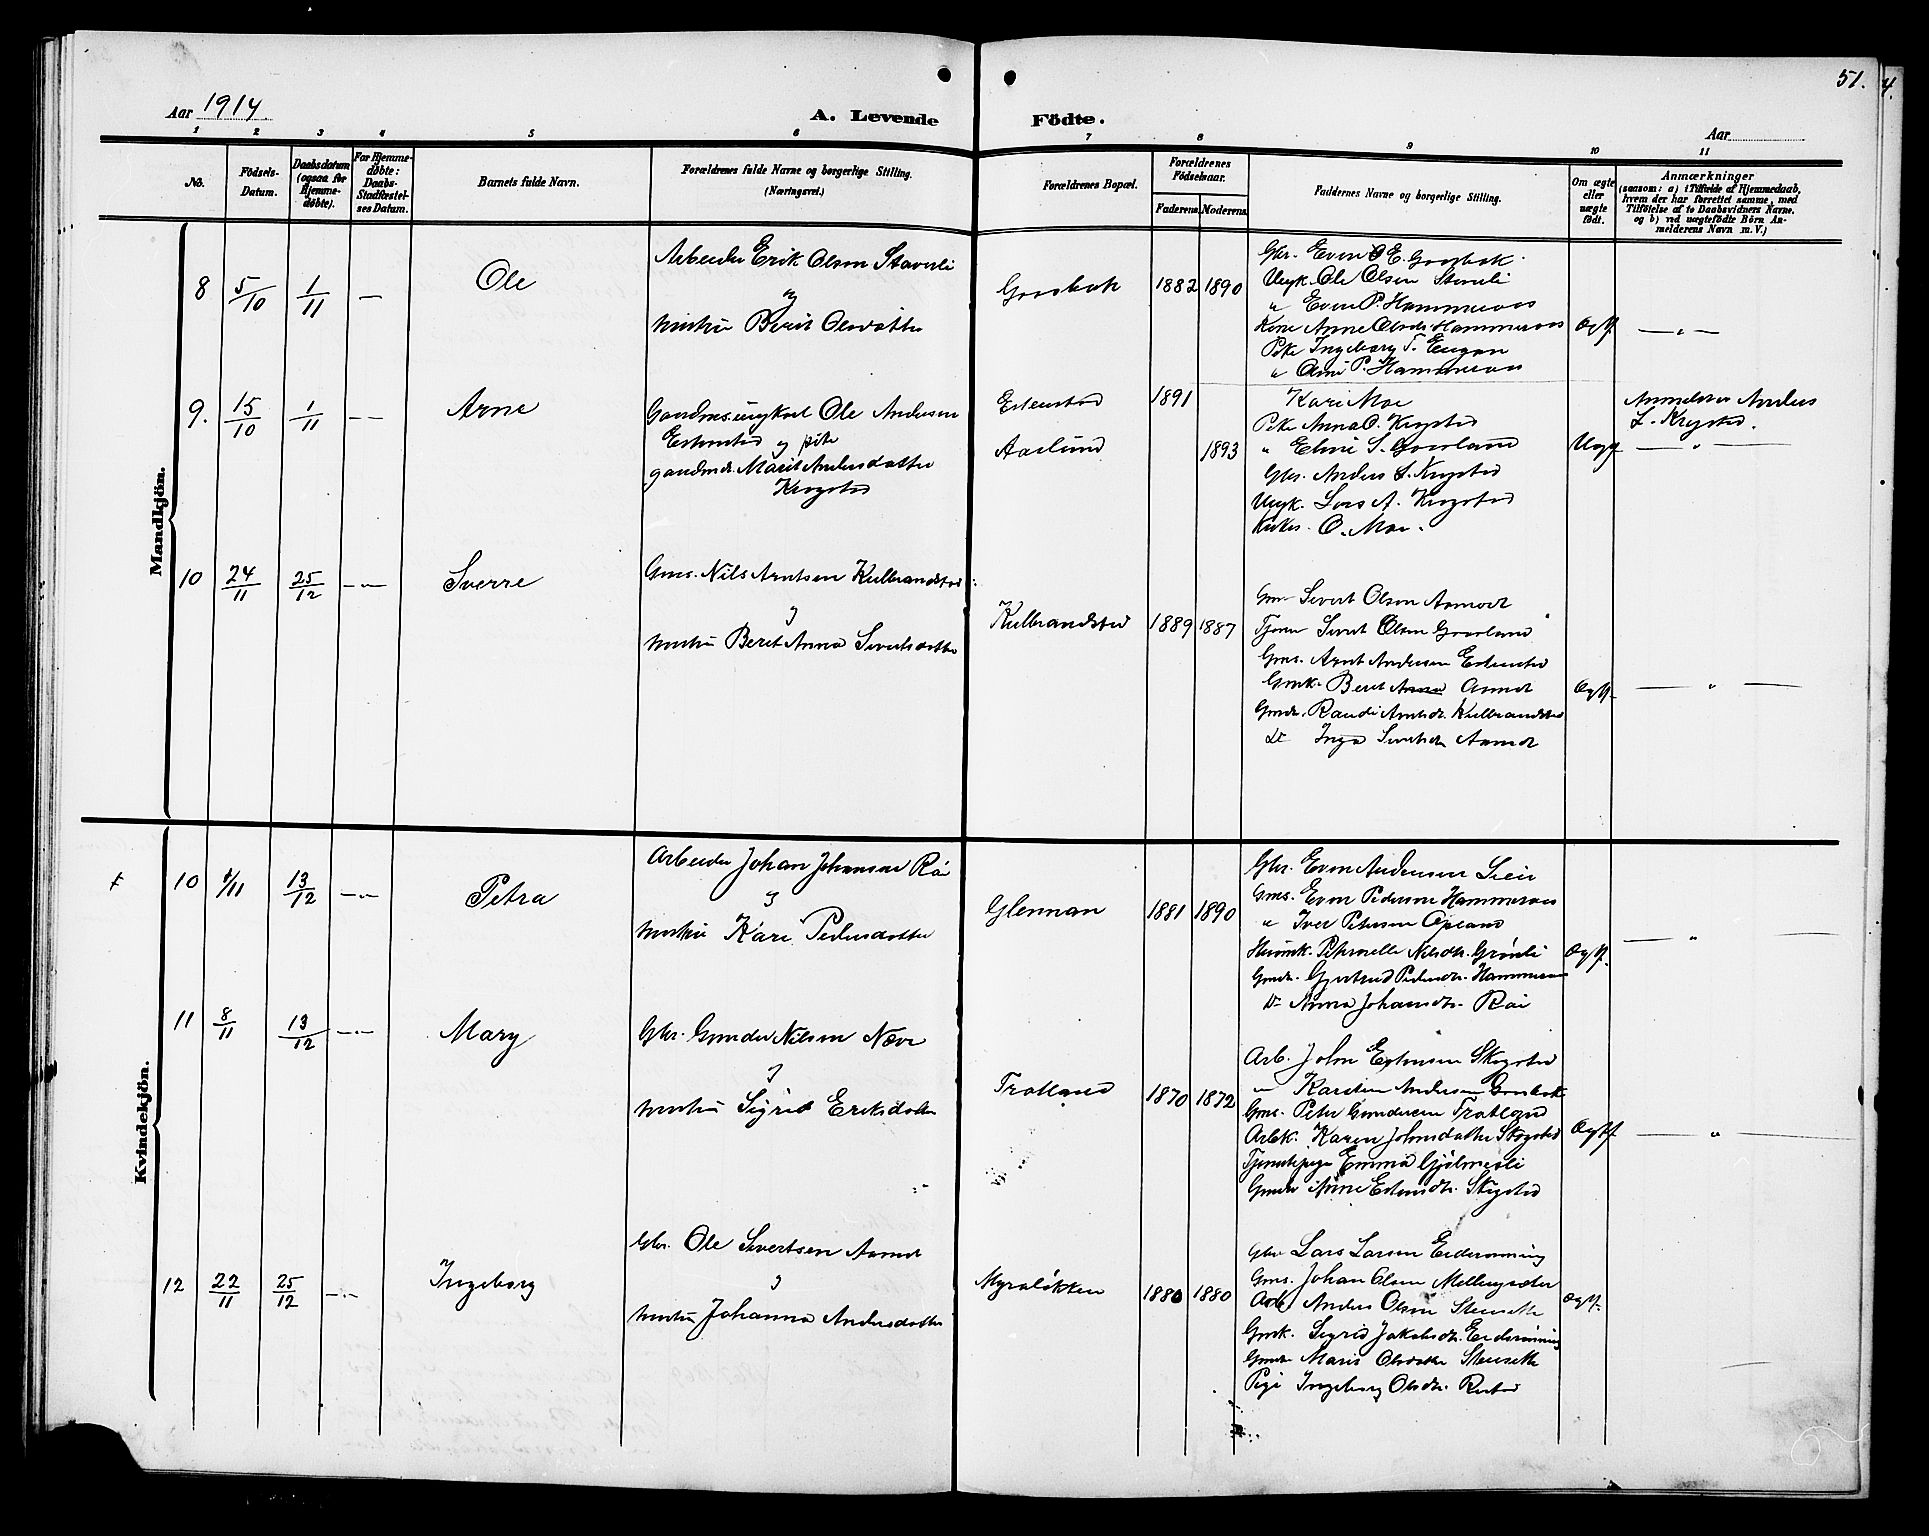 51.
4.
Aar 1914.
A. Levende Födte.
Aar
1 2 3 4 5 6 7 8 9 10 11
No.
Födsels-Datum.
Daabsdatum (ogsaa for Hjemme-döbte).
For Hjemme-döbte: Daabs-Stadfæstel-ses Datum.
Barnets fulde Navn.
Forældrenes fulde Navne og borgerlige Stilling. (Næringsvei.)
Forældrenes Bopæl.
Forældrenes Födselsaar.
Faderens. Moderens.
Faddernes Navne og borgerlige Stilling.
Om ægte eller uægte födt.
Anmærkninger
(saasom: a) i Tilfælde af Hjemmedaab, hvem der har forrettet samme, med Tilföielse af to Daabsvidners Navne. og b) ved uægtefödte Börn An-melderens Navn m. V.)
Mandkjön.
8 5/10 1/11 — Ole
Arbeider Erik Olsen Staverli
og
hustru Berit Olsdatter
1882 1890
Gbr. Even E.
Ungk. Ole Olsen
" Even P. Hammeraas
Kone Anne Olsdr Hammeraas
Pike Ingeborg T. Engan
" P. Hammeraas
Ægt. — " —
9. 15/10 1/11 — — Arne
Gaardms. ungkarl Ole Andersen
Estenstad og pike
gaardmdr. Marit Andersdatter
Krogstad
Estenstad 1891
Aaslund 1893
Kari Moe
Pike Anna O. Krogstad
" S. Goorland
Gbr. Anders L. Krogstad
Ungk. Lars A. Krogstad
Kirkes. O. Moe.
Uægt
Anmelder Anders
L. Krogstad.
— " —
10 24/11 25/12 — " — Sverre
Gms. Nils Arntsen Kulbrandstad
og
hustru Beret Anna Sivertsdatter
Kulbrandstad 1889 1887
Gm Sivert Olsen Aamodt
Tjener Sivert Olsen Goorland
Gms. Arnt Andersen Estenstad
Gmk. Beret Anna Aamot
Gmdr. Randi Arntsdr. Kulbrandstad
Do Inga Sivertsdr Aamot
Ægt. — " —
Kvindekjön.
10 4/11 13/12 — " — Petra
Arbeider Johan Johansen Röe
og
hustru Kari Pedersdatter
Glennan 1881 1890
Gbr. Even Andersen
Gms. Even Pedersen Hammeraas
" Iver Petersen Opland
Petronelle Nilsdtr. Grönli
Gmdr. Gjertrud Pedersdr. Hammeraas
Do Anna Johansdtr. Röe
Ægt. — " —
11 8/11 13/12 — " — Mary
Gbr. Gunder Nilsen Næve
og
hustru Sigrid Eriksdatter
Trotland 1870 1872
Arb. John Estensen Skogstad
" Karsten Andersen
Gms. Peter Gundersen Trotland
Arbk. Karen Johnsdatter Skogstad
Tjenestepige Emma Gjölmesli
Gmdr Anne Estensdtr. Skogstad
Ægt — " —
12 22/11 25/12 — " — Ingeborg
Gbr. Ole Sivertsen Aamot
og
hustru Johanna Andersdatter
Myraløkken 1880 1880
Gbr Lars Larsen
Gms. Johan Olsen Mellingsæter
Arb. Anders Olsen Stensette
Gmk. Sigrid Jakobsdr.
Gmdr Marit Olsdatter Stensette
Pige Ingeborg Olsdtr.
Ægt.